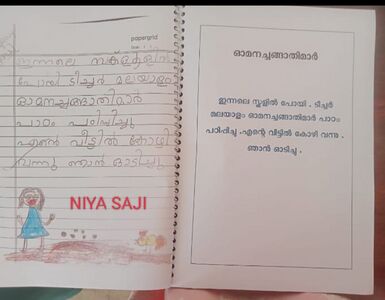 papergrid
ഇന്നലെ സ്കൂളിൽ
പോയി ടീച്ചർ മലയാളം
ഓമനച്ചങ്ങാതിമാർ
പാഠം പഠിപ്പിച്ചു
എൻ്റെ വീട്ടിൽ കോഴി
വന്നു ഞാൻ ഓടിച്ചു
NIYA SAJI
ഓമനച്ചങ്ങാതിമാർ
ഇന്നലെ സ്കൂളിൽ പോയി . ടീച്ചർ
മലയാളം ഓമനചങ്ങാതിമാർ പാഠം
പഠിപ്പിച്ചു .എന്റെ വീട്ടിൽ കോഴി വന്നു .
ഞാൻ ഓടിച്ചു .